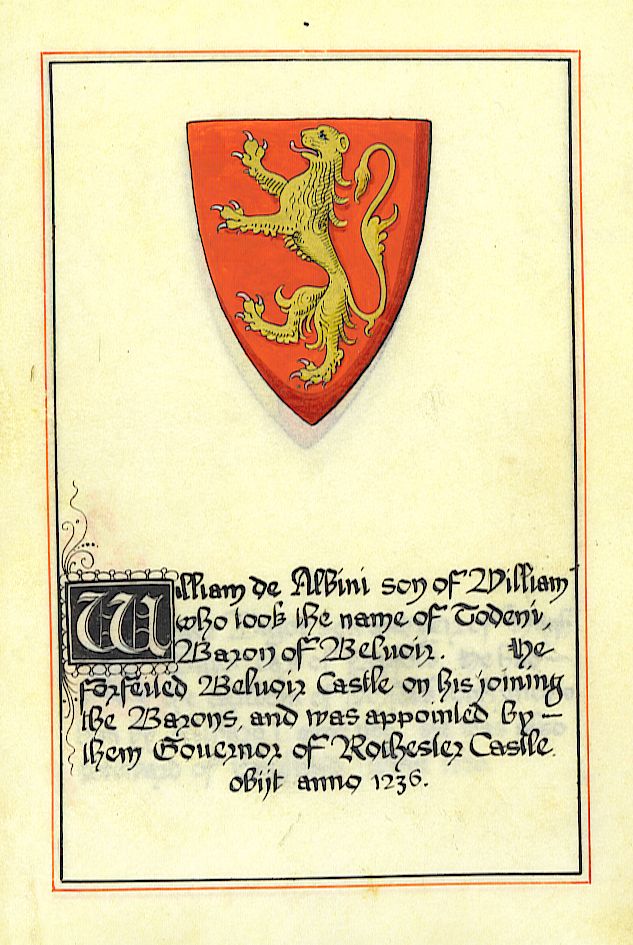 William de Albini son of William
who took the name of Todeni,
Baron of Belvoir. He
forfeited Belvoir Castle on his joining
the Barons, and was appointed by —
them Governor of Rochester Castle.
obijt anno 1236.